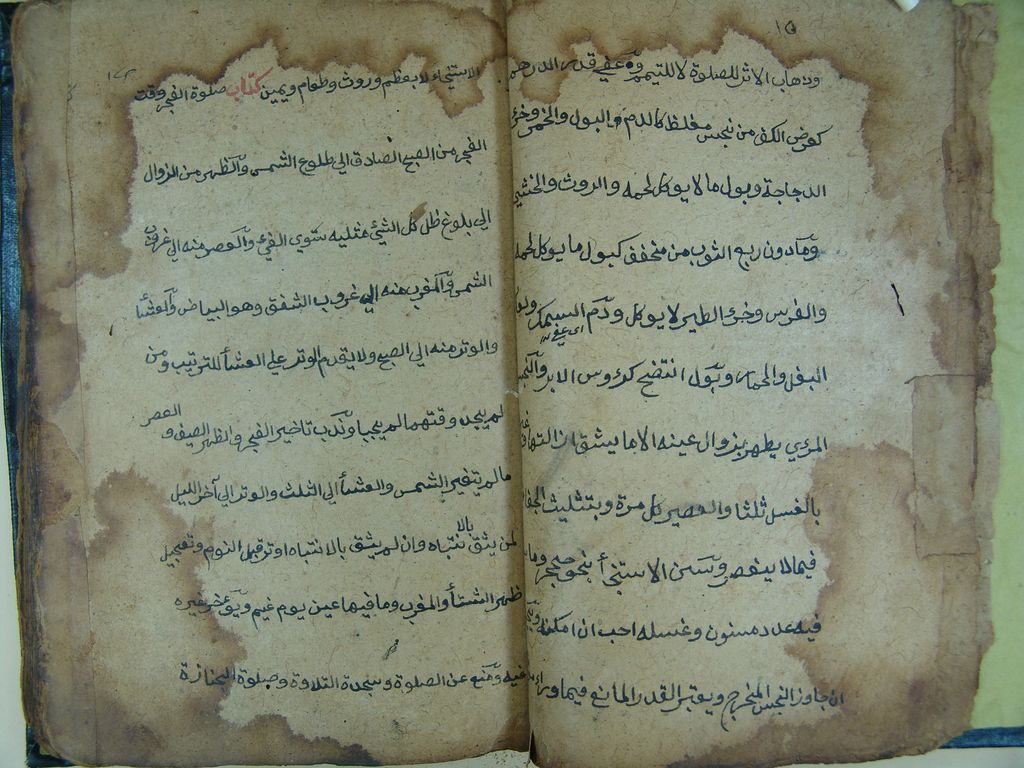 ١٥
وذهاب الاثر للصلوة لا للتيمم وعفي قدر الدرهم
كعرض الكف من نجس مغلظ كالدم والبول والخمر وخرء
الدجاجة وبول ما لا يوكل لحمه والروث والخثي
وما دون ربع الثوب من مخفف كبول ما يوكل لحمه
والفرس وخرء الطير لا يوكل ودم السمك
اى عفي
البغل والحمار وبول انتضح كرءوس الابر والنجس
المرءي يطهر بزوال عينه الا ما يشق ازالتها
بالغسل ثلثا والعصير كل مرة وبتثليث الجفاف
فيما لا ينعصر وسن الاستنجأ بنحو حجر وما
فيه عدد مسنون وغسله احب ان امكنه
ان جاوز النجس المخرج ويعتبر القدر المانع فيما وراء
الاستنجاء لا بعظم وروث وطعام ويمين كتاب صلوة الفجر وقت
الفجر من الصبح الصادق الي طلوع الشمس والظهر من الزوال
الي بلوغ ظل كل الشيئ مثليه سوي الفيء والعصر منه الي غروب
الشمس والمغرب منه الي غروب الشفق وهو البياض والعشأ
والوتر منه الي الصبح ولا يقدم الوتر علي العشأ للترتيب ومن
لم يجد وقتهما لم يجبا وندب تاخير الفجر والظهر الصيف و العصر
ما لم يتغير الشمس والعشأ الي الثلث والوتر الي آخر الليل
لمن يثق بالانتباه وان لم يثق بالانتباه اوتر قبل النوم وتعجيل
ظهر الشتأ والمغرب وما فيها عين يوم غيم ويؤخر غيره
فيه ومنع عن الصلوة وسجدة التلاوة وصلوة الجنازة